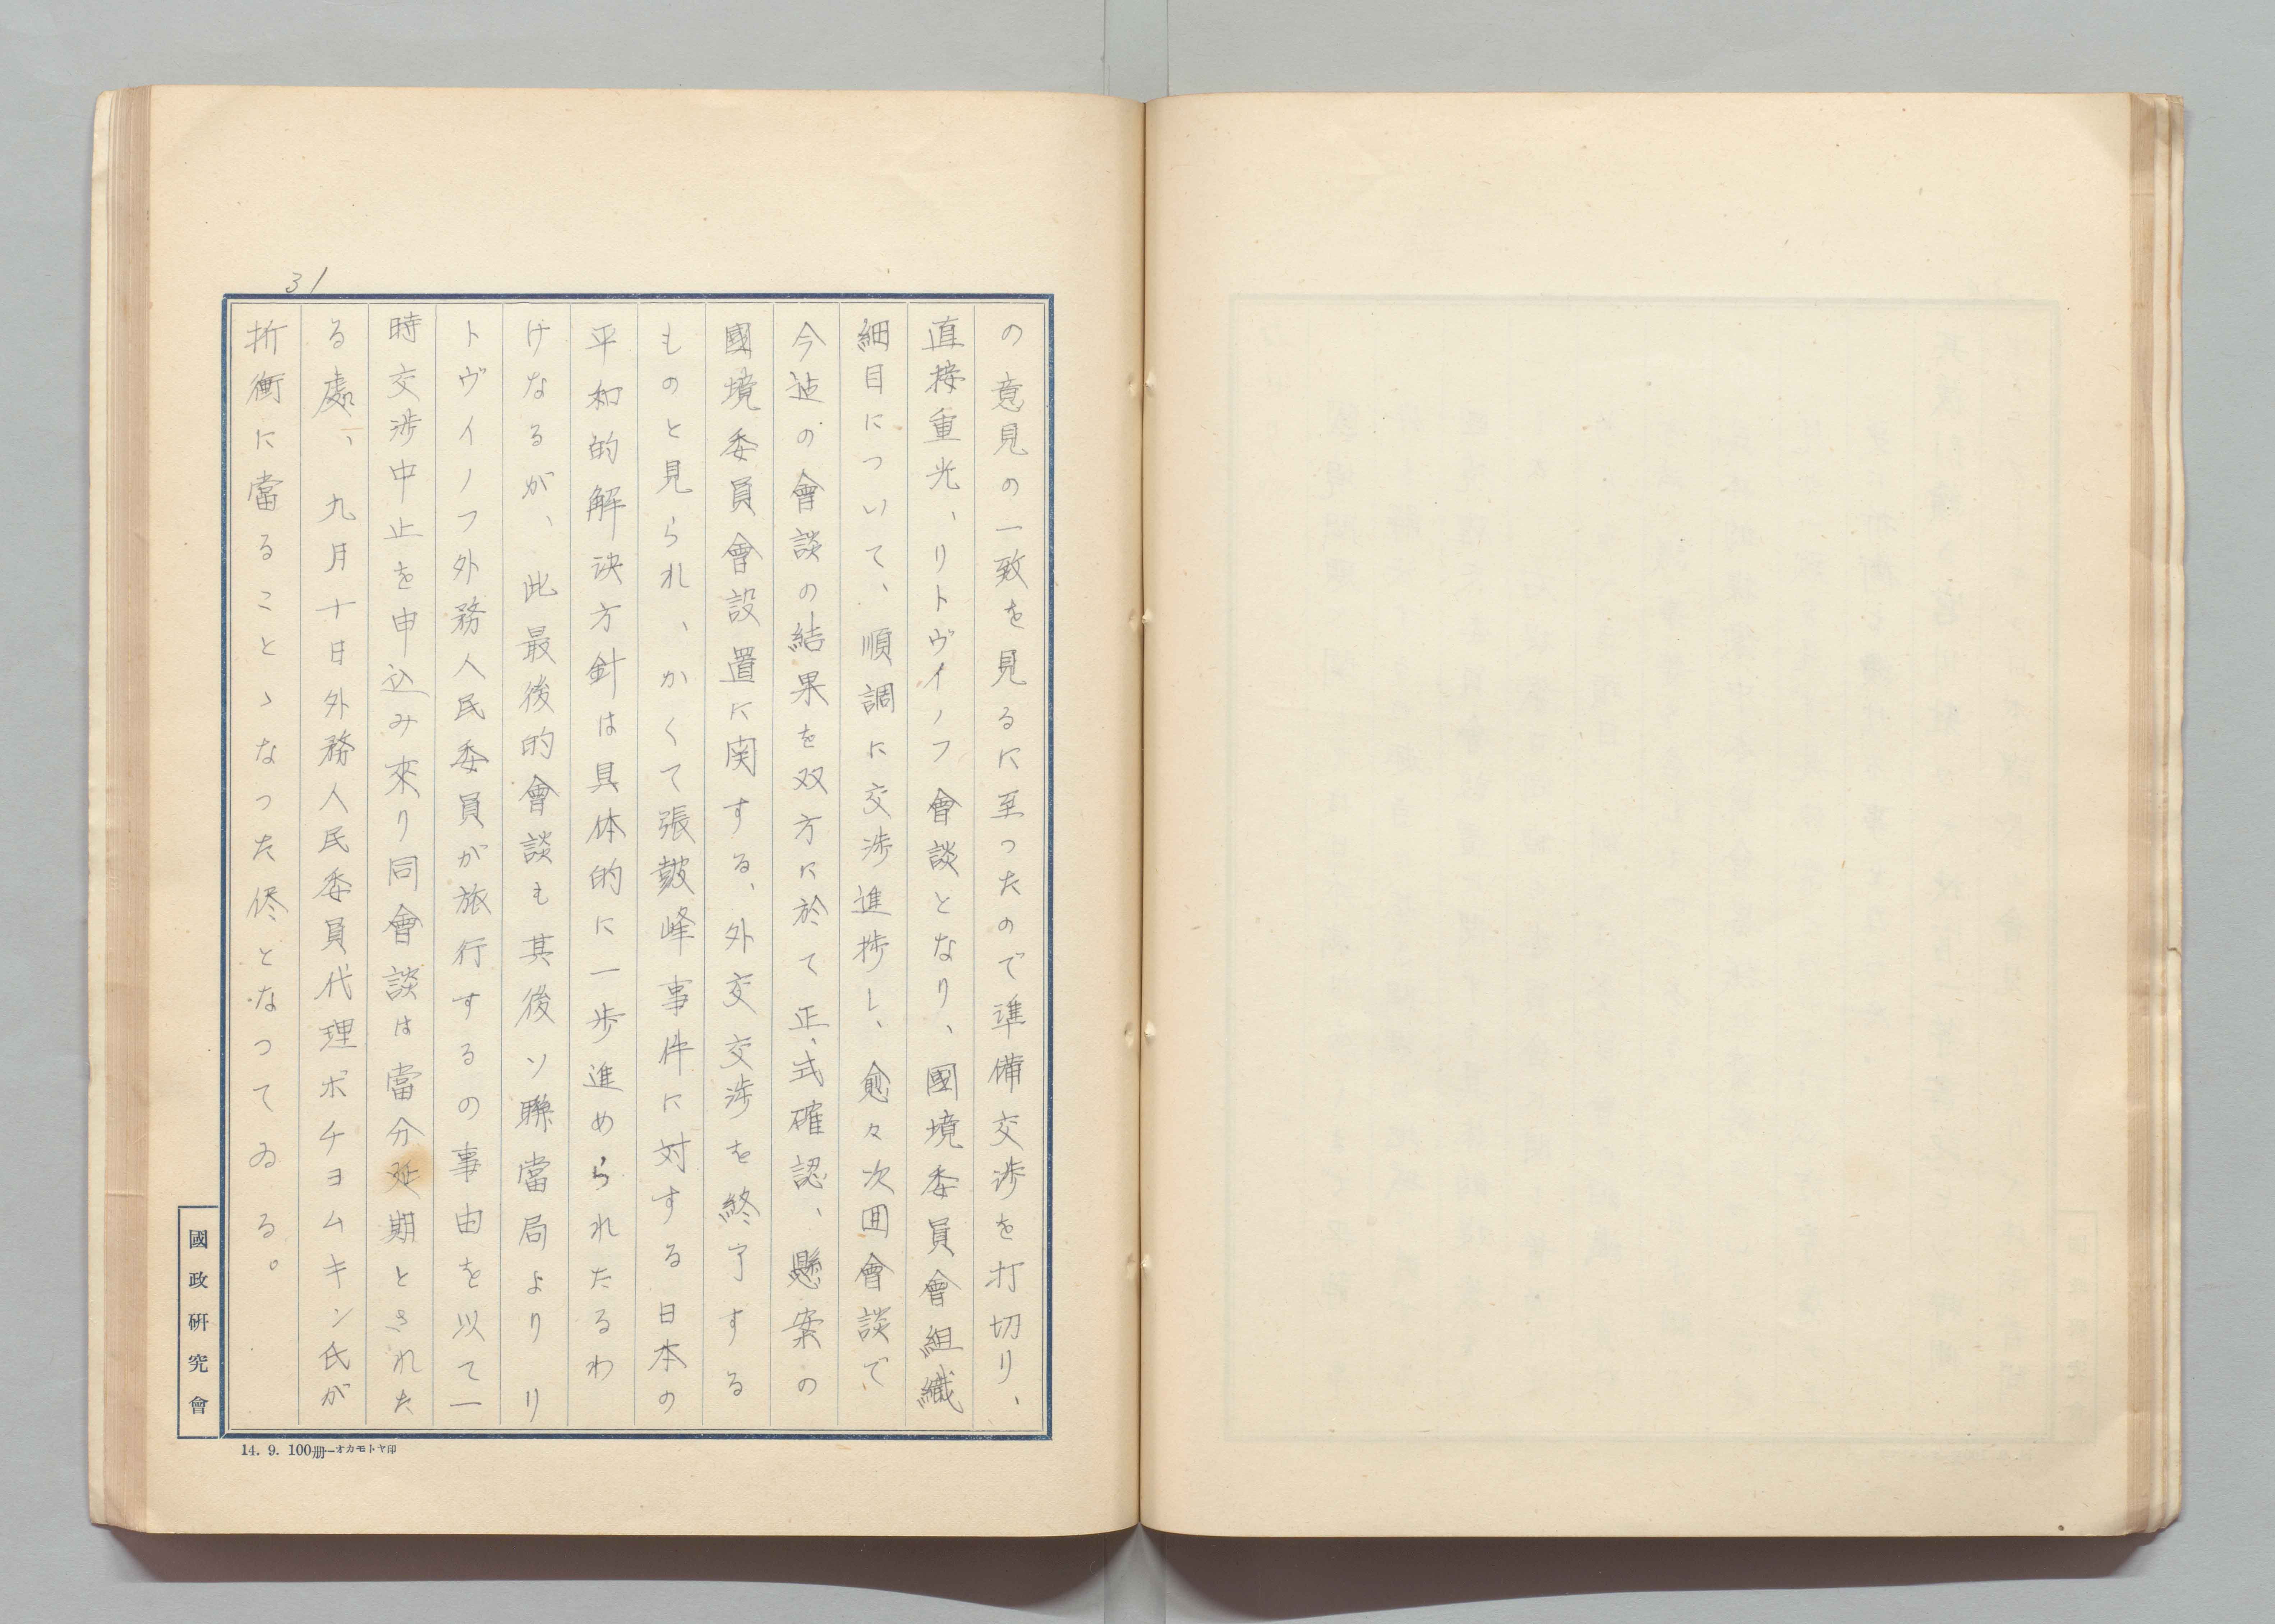 31
の意見の一致を見るに至つたので準備交渉を打切り、
直接重光、リトヴイノフ會談となり、國境委員會組織
細目について、順調に交渉進捗し、愈々次囬會談で
今迠の會談の結果を双方に於て正式確認、懸案の
國境委員會設置に関する、外交交渉を終了する
ものと見られ、かくて張皷峰事件に対する日本の
平和的解決方針は具体的に一歩進められたるわ
けなるが、此最後的會談も其後ソ聯當局より リ
トヴイノフ外務人民委員が旅行するの事由を以て一
時交渉中止を申込み來り同會談は當分延期とされた
る處、九月十日外務人民委員代理ポチヨムキン氏が
折衝に當ることゝなつた侭となつてゐる。
國政研究會
14. 9. 100册—オカモトヤ印